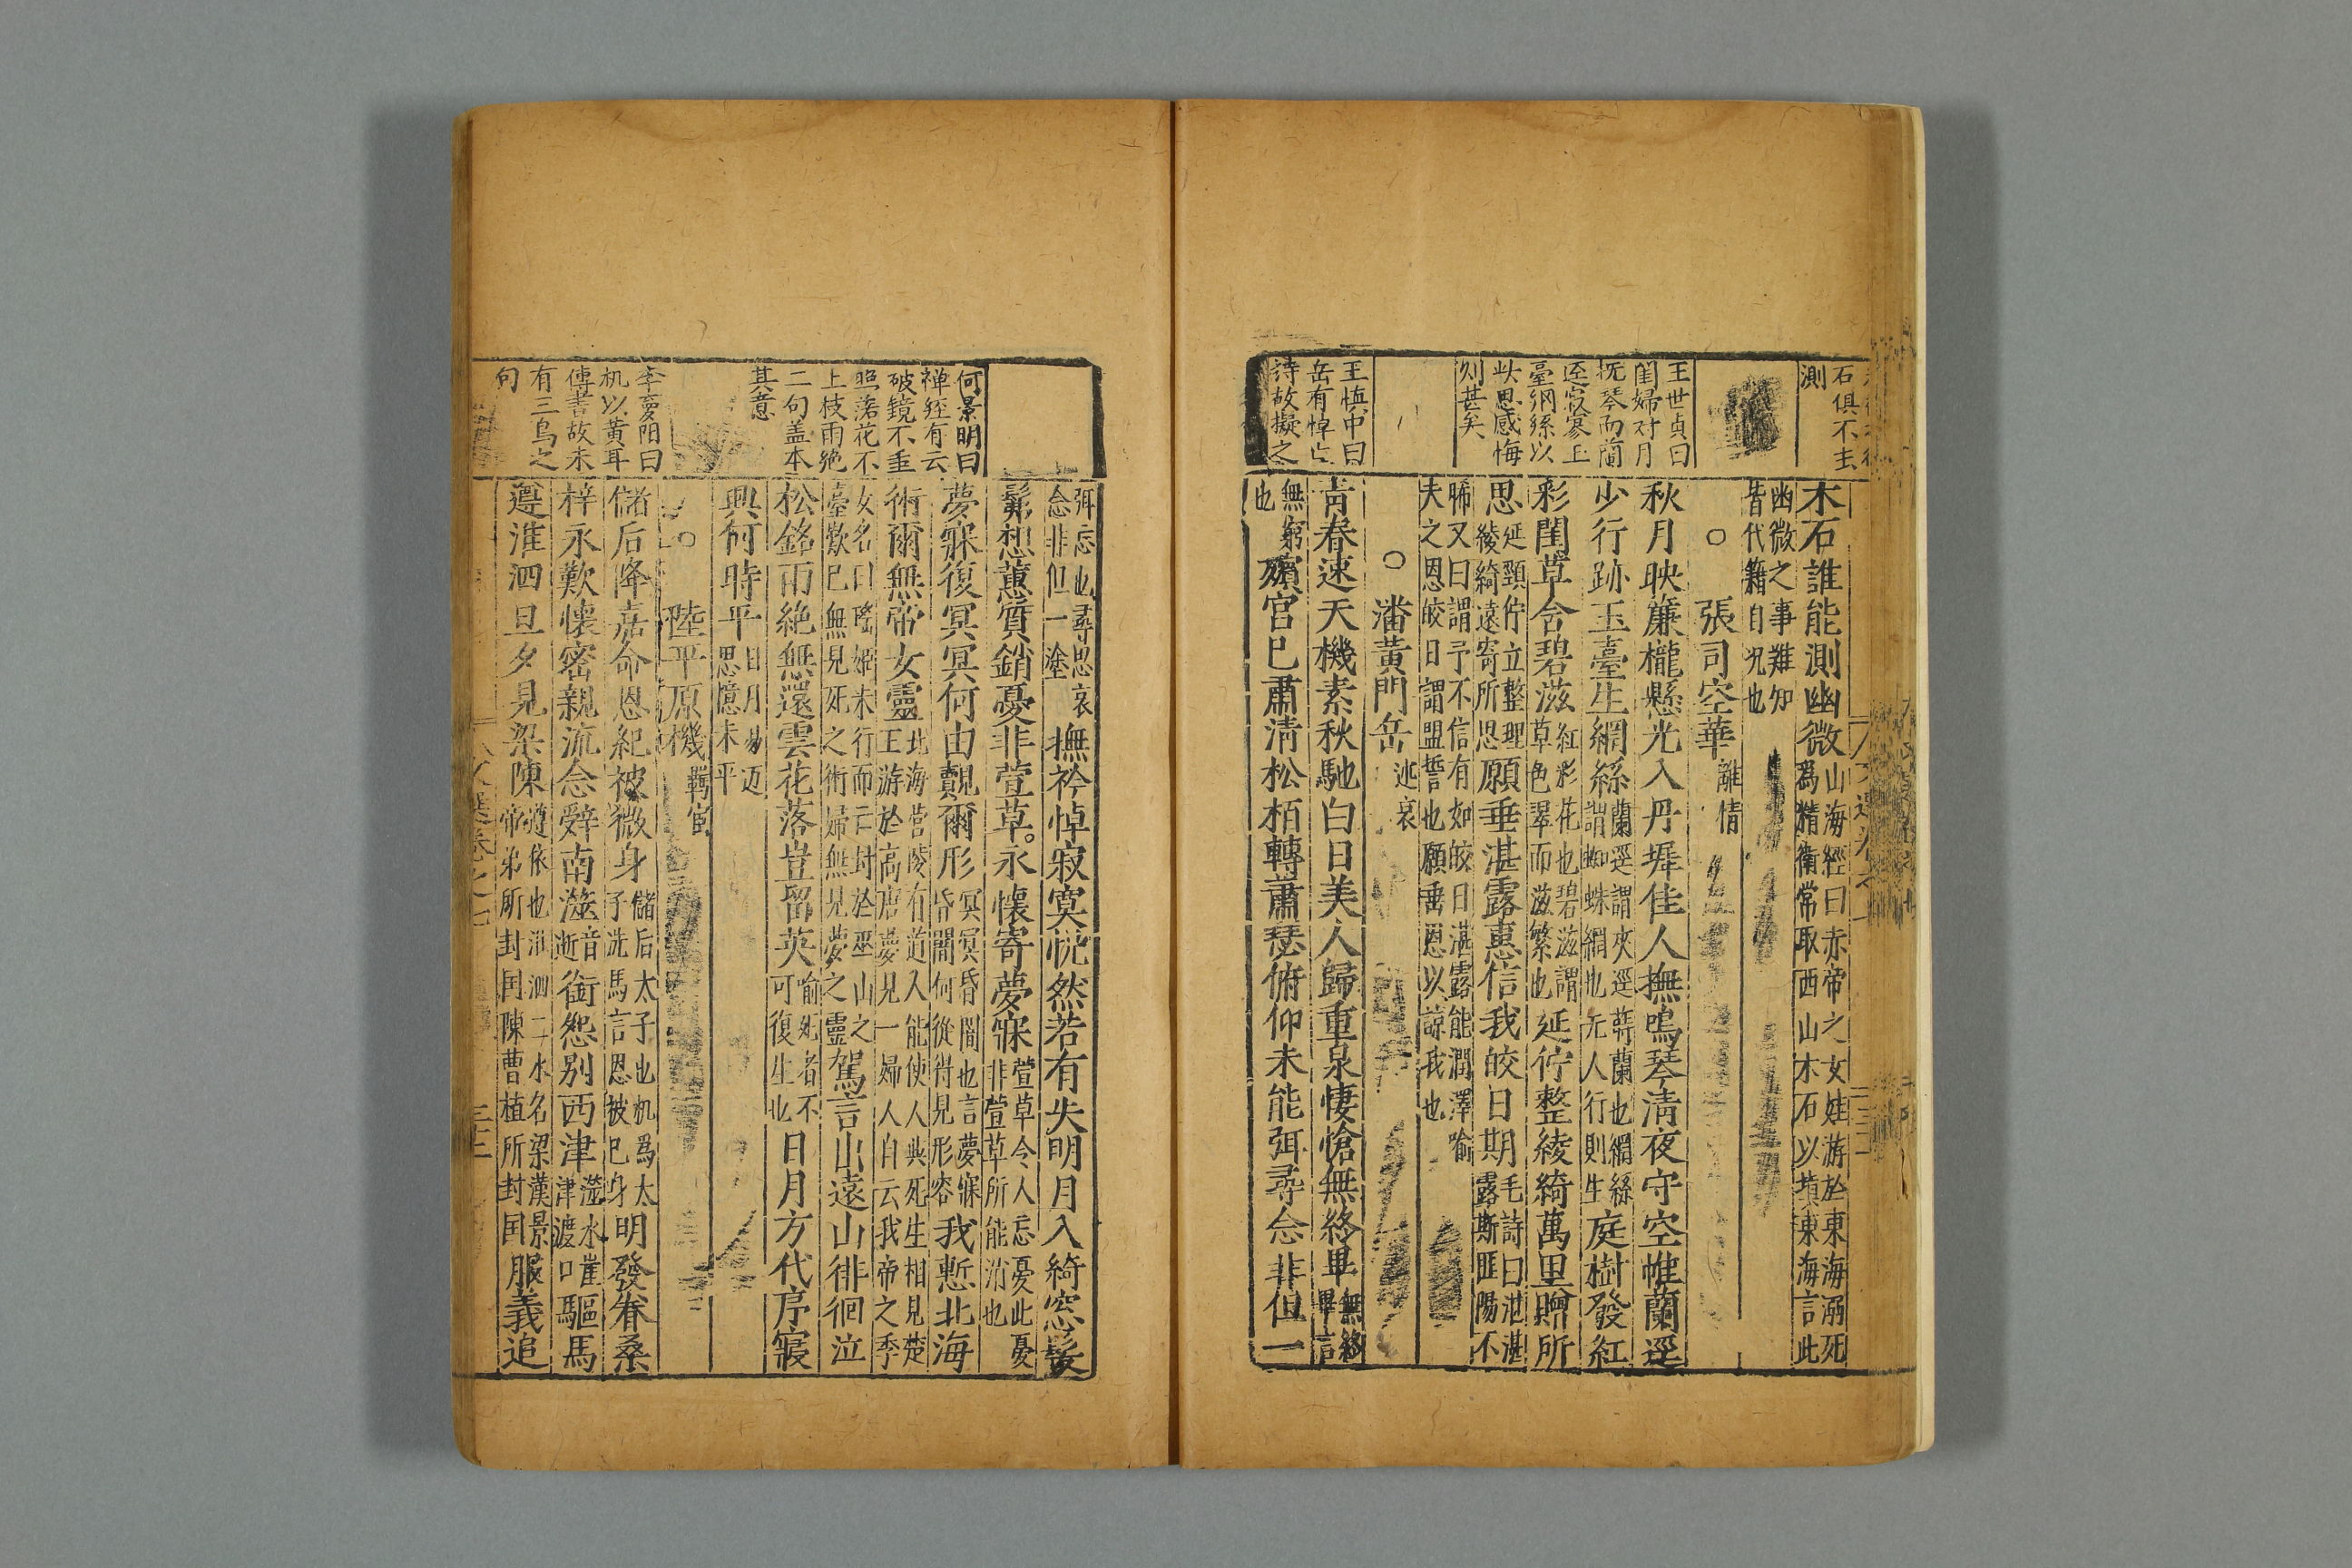 石俱不去
測
王世貞曰
閨婦対月
抚琴而蘭
逕寂寥玉
臺網絲以
此思感悔
則甚矣
王慎中曰
岳有悼亡
詩故擬之
木石誰能測幽微山海經曰赤帝之女娃游於東海溺死
為精衛常取西山木石以塡東海言此
幽微之事難知
皆代籍自况也
○張司空華離情
秋月映簾櫳懸光入丹墀佳人撫鳴琴清夜守空帷蘭逕
少行跡玉臺生網絲蘭逕謂夾逕蒔蘭也網絲
謂蜘蛛網也无人行則生庭樹發紅
彩閨草含碧滋紅彩花也碧滋謂
草色翠而滋繁也延佇整綾綺萬里贈所
思延頸佇立整理
綾綺遠寄所思願垂湛露惠信我皎日期毛詩曰湛湛
露斯匪陽不
晞又曰謂予不信有如皎日湛露能潤澤喻
夫之恩皎日謂盟誓也願垂恩以諒我也
○潘黃門岳述哀
青春速天機素秋馳白日美人歸重泉悽愴無終畢無終
畢言
無窮
也殯宫已肅清松栢轉蕭瑟俯仰未能弭尋念非但一
何景明曰
禅経有云
破鏡不重
照落花不
上枝雨絶
二句盖本
其意
李夢阳曰
机以黄耳
傳書故未
有三鳥之
句
弭忘也尋思哀
念非但一塗撫衿悼寂寞恍然若有失明月入綺窓髣
髴想蕙質銷憂非萱草。永懷寄夢寐萱草令人忘憂此憂
非萱草所能消也
夢寐復冥冥何由覿爾形冥冥昏闇也言夢寐
昏闇何從得見形容我慙北海
術爾無帝女靈北海營陵有道人能使人與死生相見楚
王游於高唐夢見一婦人自云我帝之季
女名曰瑤姬未行而亡封於巫山之
臺歎已無見死之術婦無見夢之靈駕言出遠山徘徊泣
松銘雨絶無還雲花落豈留英喻死者不
可復生也日月方代序寢
興何時平日月易迈
思憶未平
○陸平原機羇宦
儲后降嘉命恩紀被微身儲后太子也机為太
子洗馬言恩被己身明發眷桑
梓永歎懷密親流念辭南澨音
逝銜怨别西津澨水崖
津渡口驅馬
遵淮泗旦夕見梁陳遵依也淮泗二水名梁漢景
帝弟所封国陳曹植所封国服義追